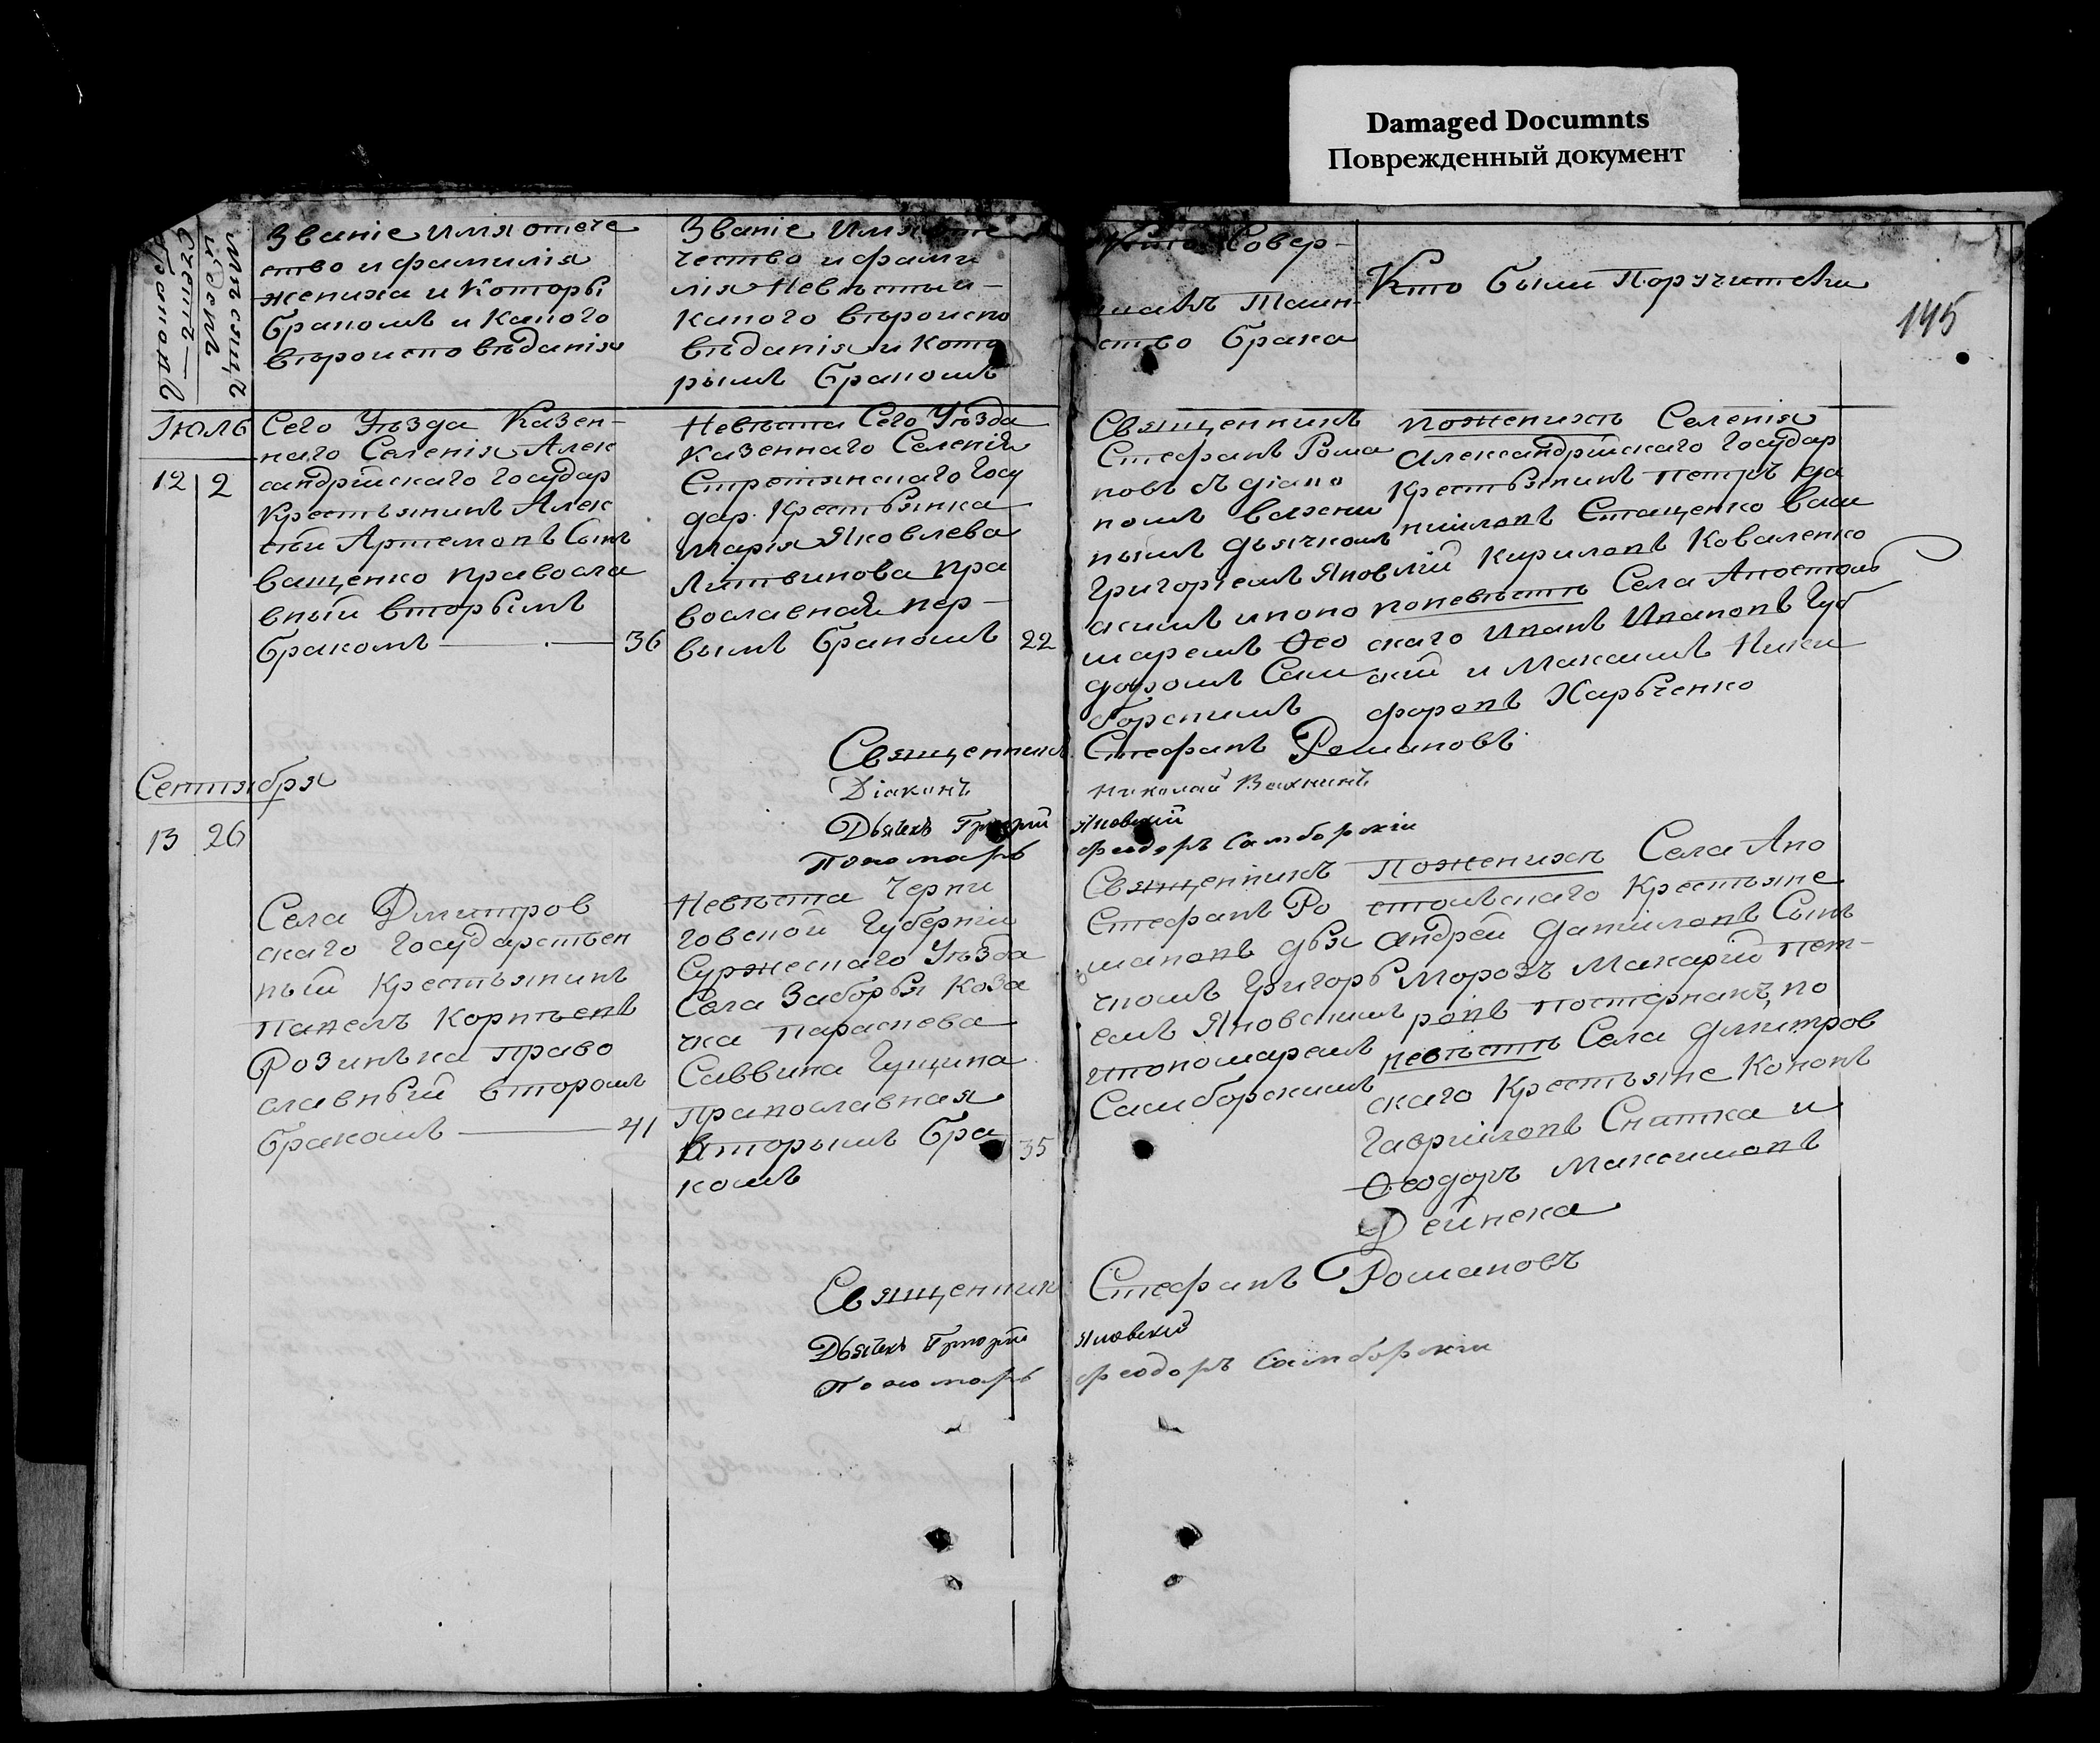 Damaged Documnts
Поврежденный документ
145
Счетъ браковъ
Мѣсяцъ и день
Званіе имя отече
ство и фамилія
жениха и Которы
бракомъ и какого
вѣроисповѣданія
Званіе Имя Оте
чество и фами
лія Невѣсты и
какого вѣроиспо
вѣданія и кото
рымъ бракомъ
Кто Совер-
шалъ Таин-
ство брака
Кто были Поручители
Іюль
12 2
Сего Уѣзда Казен-
наго Селенія Алек
сандрійскаго Государ
Крестьянинъ Алек
сѣй Артемовъ Сынъ
Ващенко правосла
вный вторымъ
бракомъ 36
Невѣста Сего Уѣзда
Казеннаго Селенія
Стретянскаго Госу
дар. Крестьянка
Марія Яковлева
Литвинова пра
вославная пер-
вымъ бракомъ 22
Священникъ
Стефанъ Рома
новъ съ діако
номъ Вахни
нымъ дьячкомъ
Григоріемъ Яновс
кимъ и поно
маремъ Ѳео
доромъ Сам
борскимъ
по женихѣ Селенія
Александрійскаго Государ
Крестьянинъ Петръ Да
ниловъ Стащенко Васи
лій Кириловъ Коваленко
по невѣстѣ Села Апостоль
скаго Иванъ Ивановъ Губ
скій и Максимъ Ники
форовъ Харьченко
Священникъ Стефанъ Романовъ
Діаконъ Николай Вахнинъ
Дьячекъ Григорій Яновскій
Пономарь Феодоръ Самборскій
Сентября
13 26
Села Дмитров
скаго Государствен
ный Крестьянинъ
Павелъ Корнѣевъ
Розинька право
славный вторымъ
бракомъ 41
Невѣста Черни
говской Губерніи
Суржескаго Уѣзда
Села Заборья Коза
чка Параскева
Саввина Гущина
Православная
вторымъ бра
комъ 35
Священникъ
Стефанъ Ро
мановъ дья
чкомъ Григорь
емъ Яновскимъ
и пономаремъ
Самборскимъ
По женихѣ Села Апо
стольскаго Крестьяне
Андрей Даниловъ Сынъ
Морозъ Макарій Пет-
ровъ Постернакъ, по
невѣстѣ Села Дмитров
скаго Крестьяне Кононъ
Гавриловъ Снитка и
Ѳеодоръ Максимовъ
Дейнека
Священникъ Стефанъ Романовъ
Дьячекъ Григорій Яновскій
Пономарь Феодоръ Самборскій